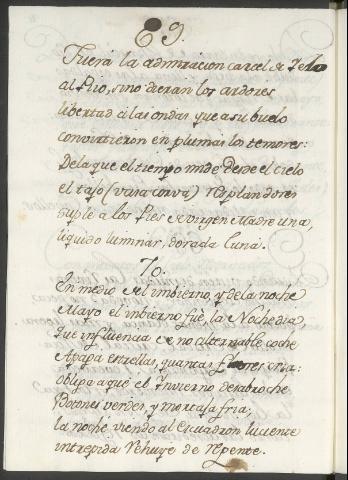 69.
Fuera la admiracion carcel de Yelo
al Pio, sino dieran los ardores
libertad à las ondas que a su buelo
convirtieron en plumas los temores:
De la que el tiempo mide desde el cielo
el tajo (vara corva) resplandores
suple a los Pies de virgen Madre una,
liquido luminar, dorada luna.
70.
En medio del imbierno, y de la noche
Mayo el imbierno fuè, la Noche dia,
que influencia de no alternable coche
Apaga estrellas, quantas flores cria:
obliga a què el Invierno desabroche
Botones verdes, y mortaja fria,
la noche viendo al Escuadron luciente
intrepida rehuye de repente.